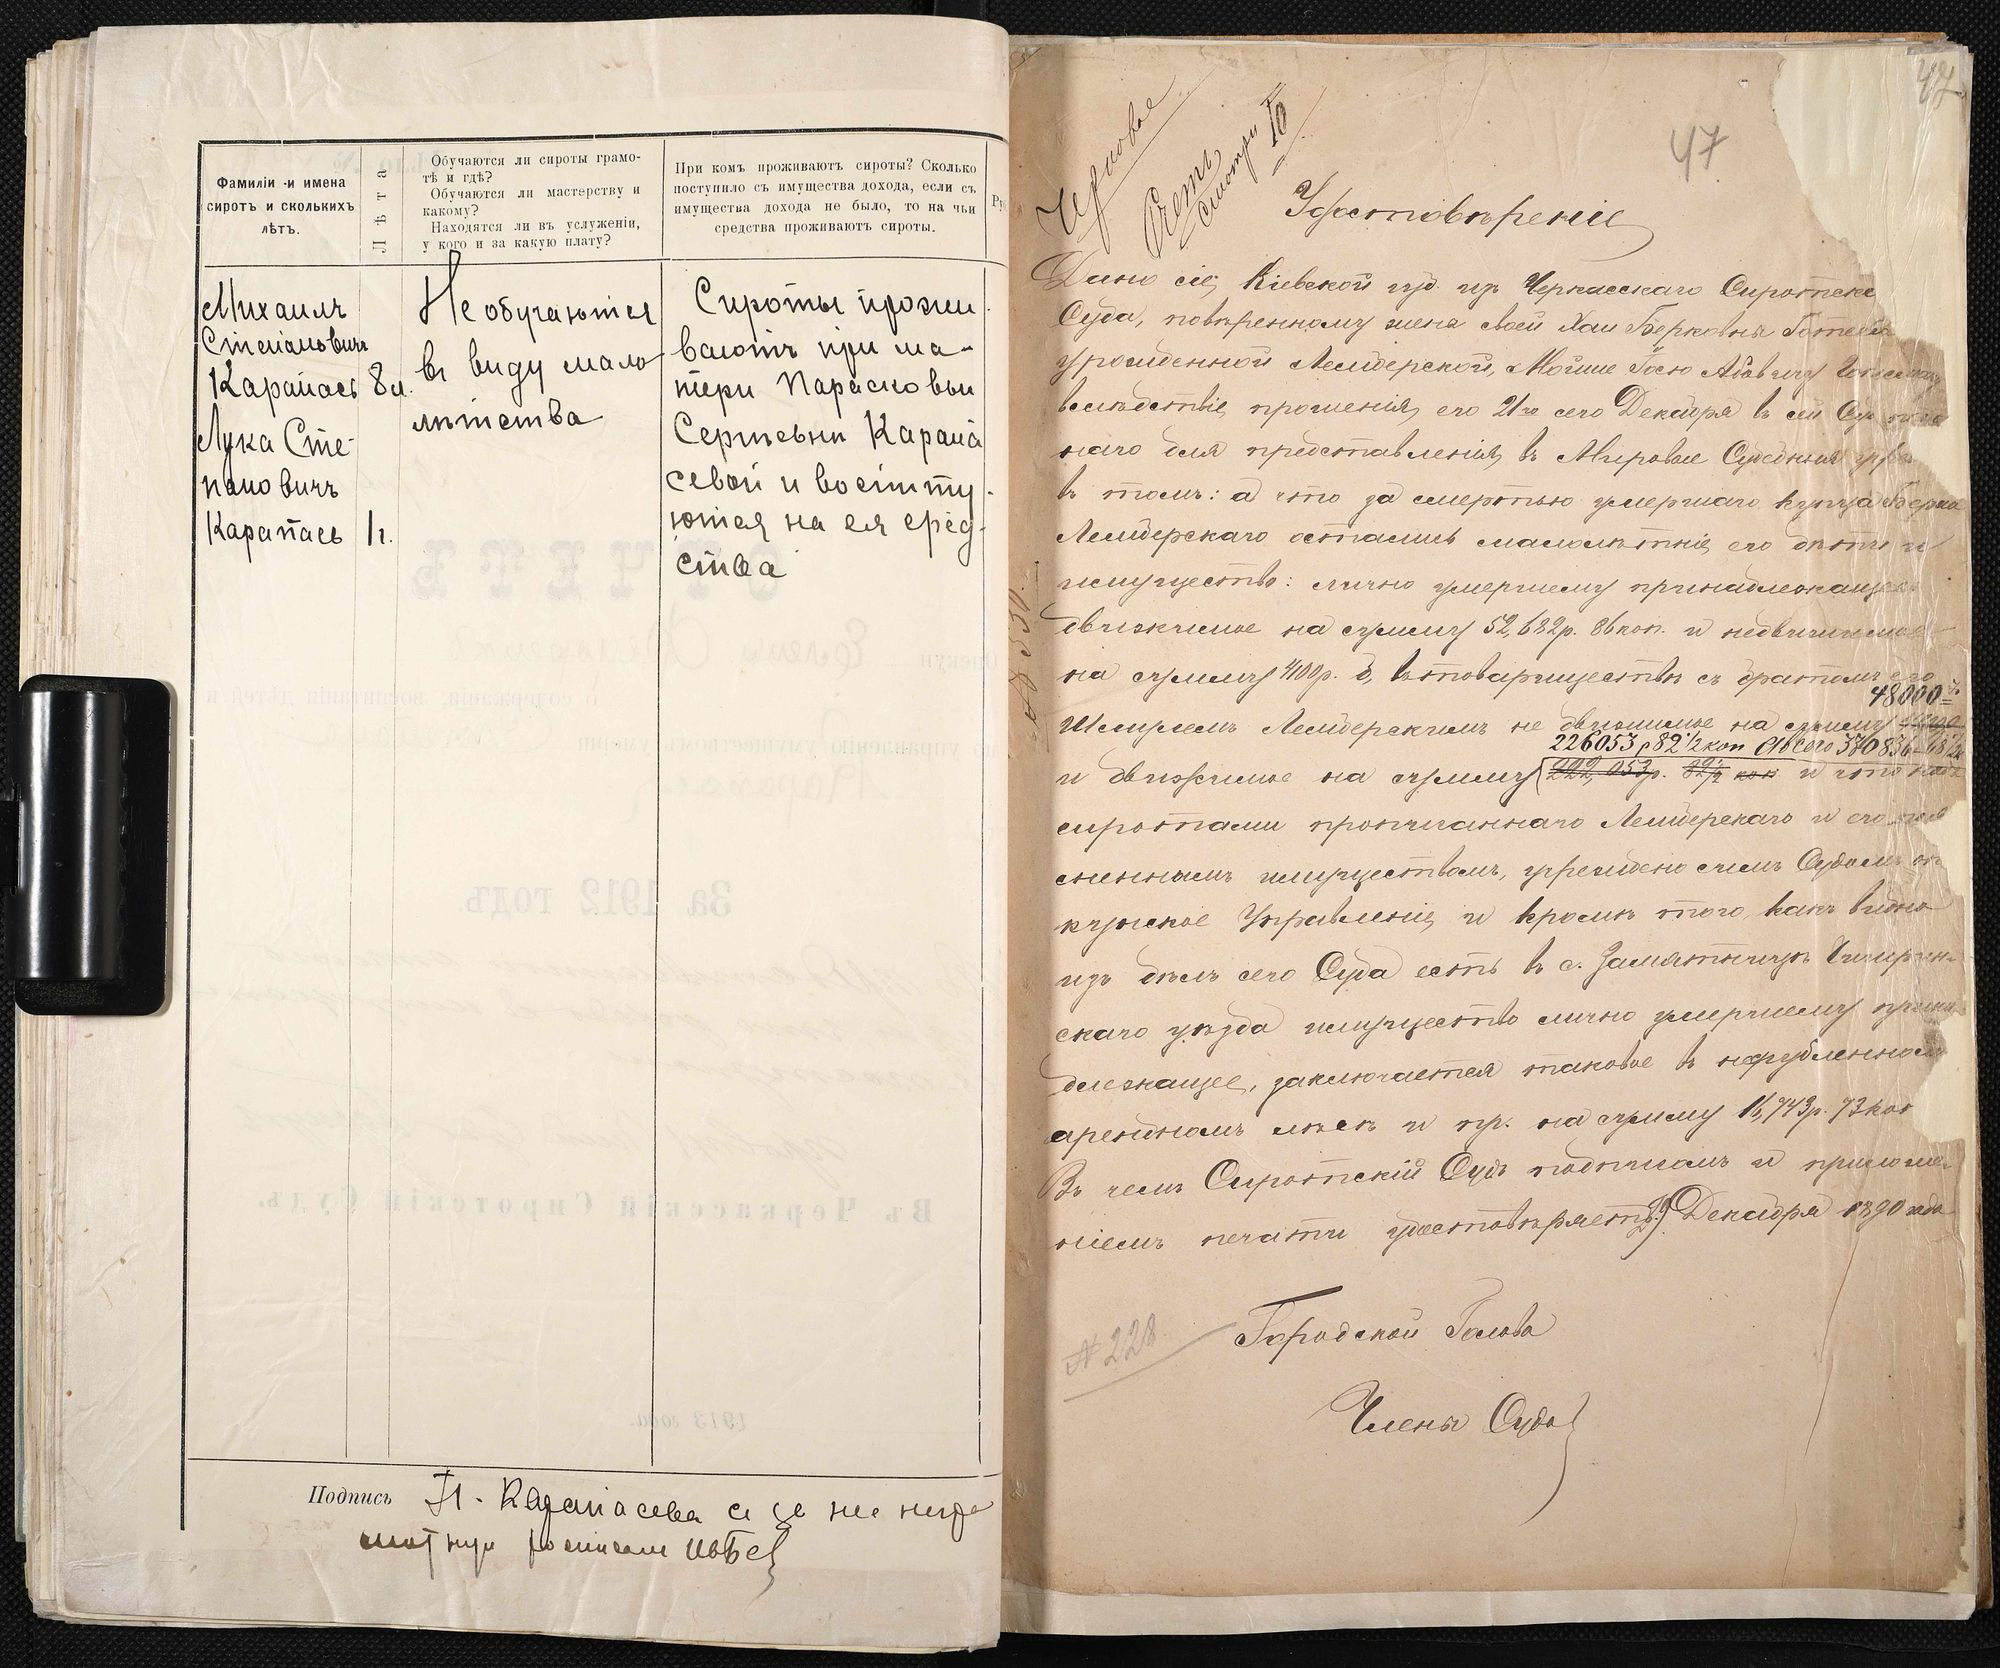 Фамиліи и имена
сиротъ и сколькихъ
лѣтъ.
Лѣта
Обучаются ли сироты грамо-
тѣ и гдѣ?
Обучаются ли мастерству и
какому?
Находятся ли въ услуженіи,
у кого и за какую плату?
При комъ проживаютъ сироты? Сколько
поступило съ имущества дохода, если съ
имущества дохода не было, то на чьи
средства проживаютъ сироты.
Михаилъ
Степановичъ
Карапасъ 8 л.
Лука Сте-
пановичъ
Карапасъ 1 г.
Не обучаются
въ виду мало
лѣтства
Сироты прожи-
ваютъ при ма-
тери Парасковьи
Сергѣевни Карапа
севой и воспиту-
ются на ея сред-
ства
Подпись П. Карапасева а за не
47
47
Черновое
Счетъ
смотри
Удостовѣреніе
Дано сіе, Кіевской губ. изъ Черкасскаго Сиротскаго
Суда, повѣренному жены своей Хаи Берковны
урожденной Лемберской, Мойше Іосю Абовичу
вслѣдствіе прошенія, его 21го сего Декабря въ сей Судъ
наго для представленія, въ Мировые Судебныя
въ томъ: а что за смертью умершаго купца Берка
Лемберскаго остались малолѣтніе его дѣти и
имущество: лично умершему принадлежащее
движимое на сумму 52,682р. 86 коп. и недвижимое
на сумму 4100р. б, въ товариществѣ съ братомъ его
48000
Шмулемъ Лемберскимъ не движимое на сумму
226053 р 82 1/2 коп
и движимое на сумму 222,053р. 82 1/2 коп и что надъ
сиротами прописаннаго Лемберскаго и его
имуществомъ, учреждено симъ Судомъ опе
кунское Управленіе, и кромѣ того, какъ видно
изъ дѣлъ сего Суда есть въ с. Замятницѣ Чигирин-
скаго уѣзда имущество лично умершему прина
длежащее, заключается таковое въ
арендномъ лѣсѣ и пр. на сумму 16,743р. 73 коп
Въ чемъ Сиротскій Судъ подписомъ и приложе-
ніемъ печати удостовѣряетъ. Декабря 1890 года
№ 228
Городской Голова
Члены Суда